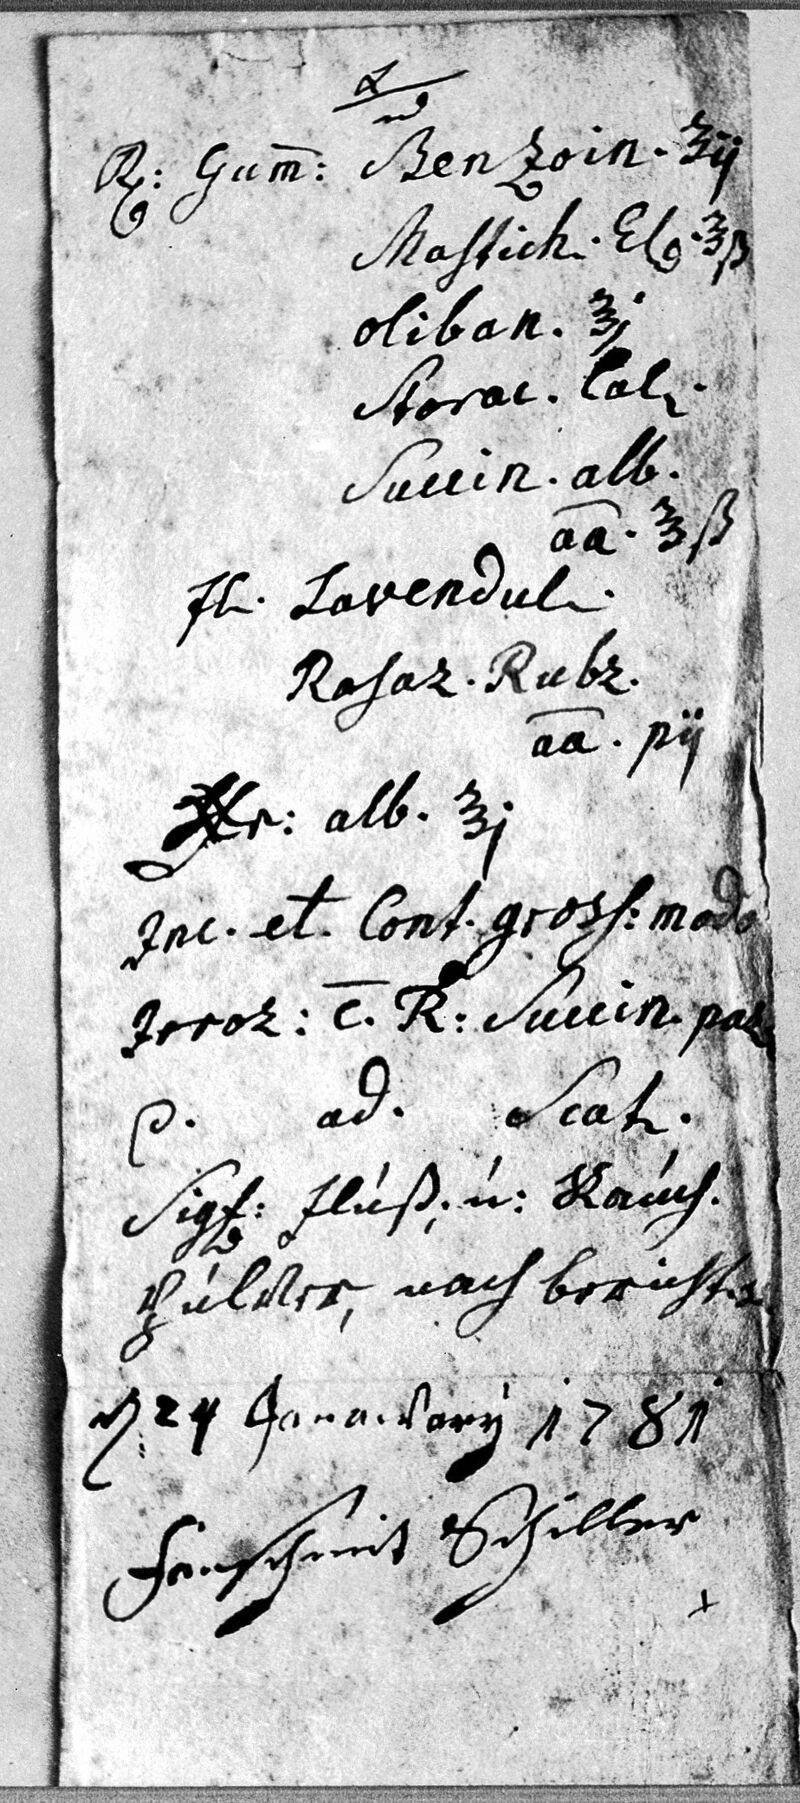 R: Gum̄: Benzoin. ʒij
Mastich. El. ʒß
oliban. ʒj
Storac. Cal.
Succin. alb.
āā. ʒß
fl. Lavendul.
Rosar. Rubr.
āā. pij
alb. ʒj
Inc. et. Cont. gross: modo
Irror: c̄. Succin. par
D. ad. Scat.
Sigf: Fluß, u: Rauch.
Pulver, nach bericht.
d 24 Janawary 1781
Schiller